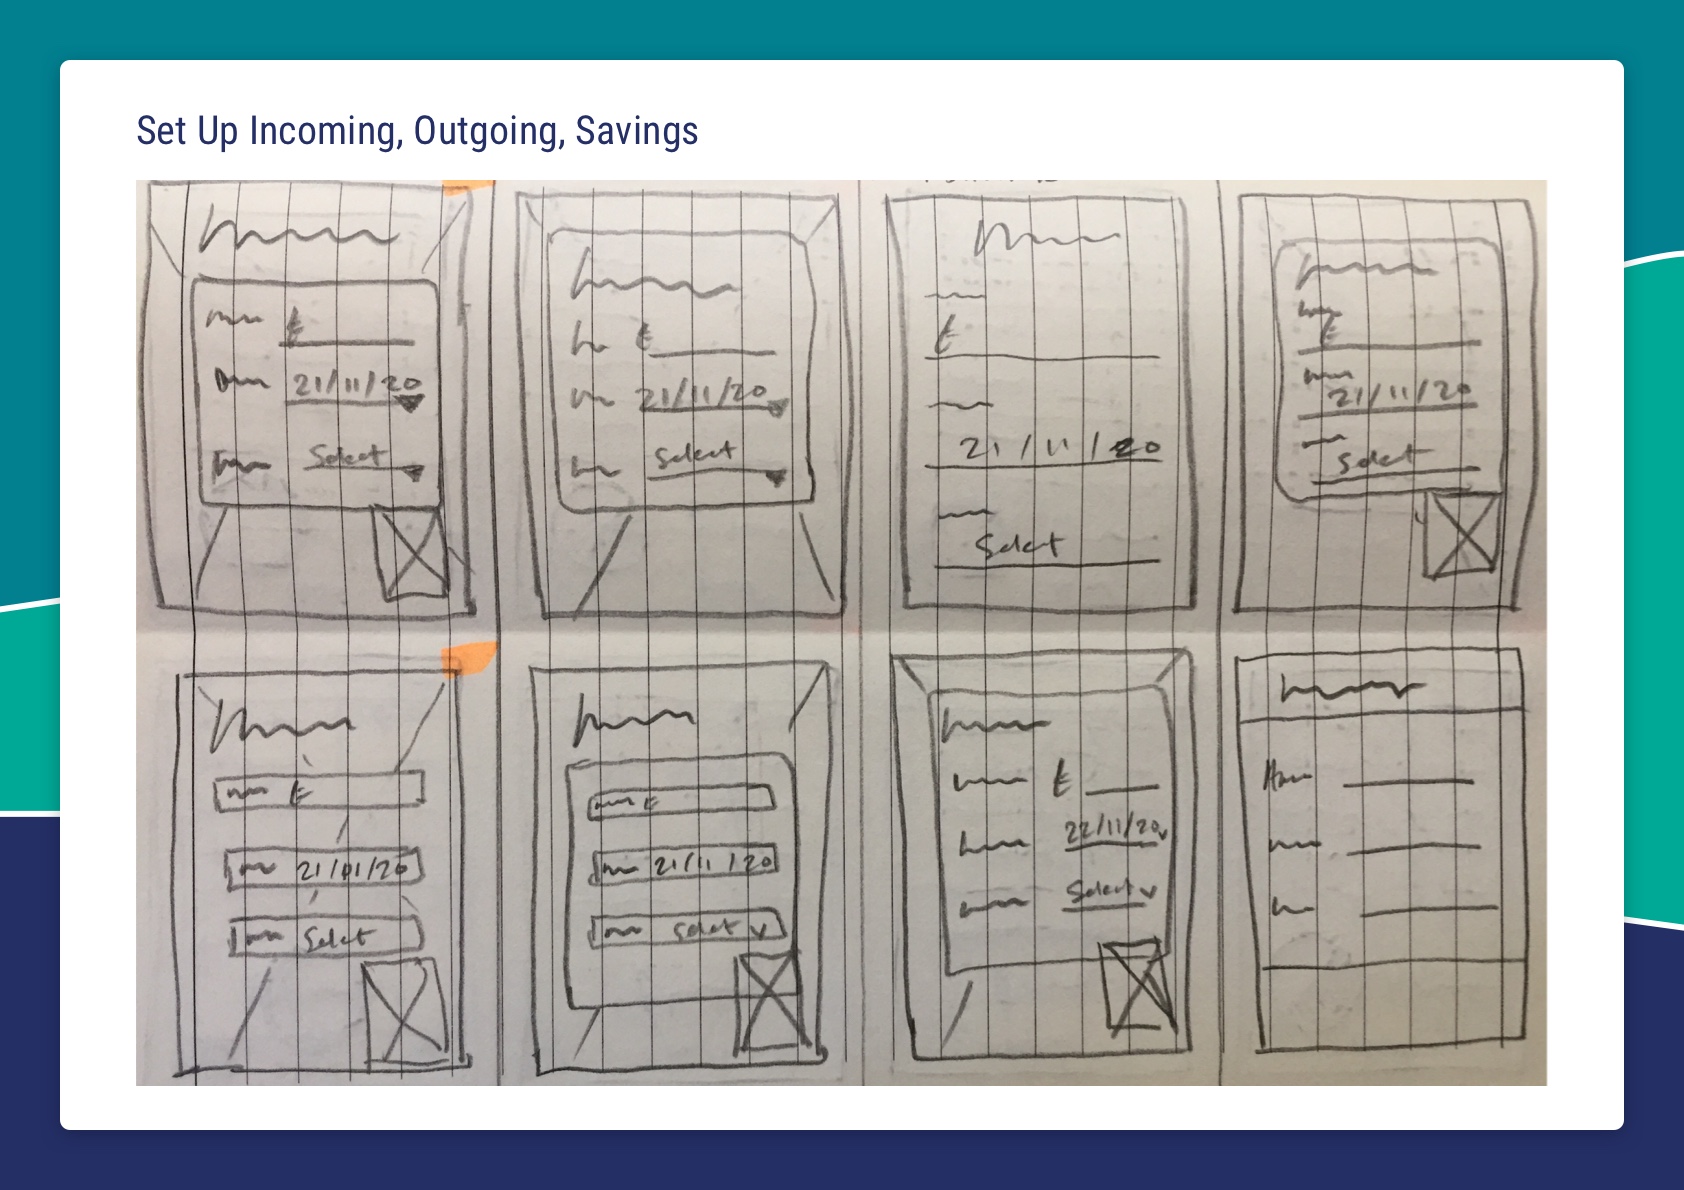 Set Up Incoming, Outgoing, Savings
£
21/11/20
Select
£
21/11/20
Select
£
21/11/20
Select
£
21/11/20
Select
£
21/01/20
Select
£
21/11/20
Select
£
22/11/20
Select